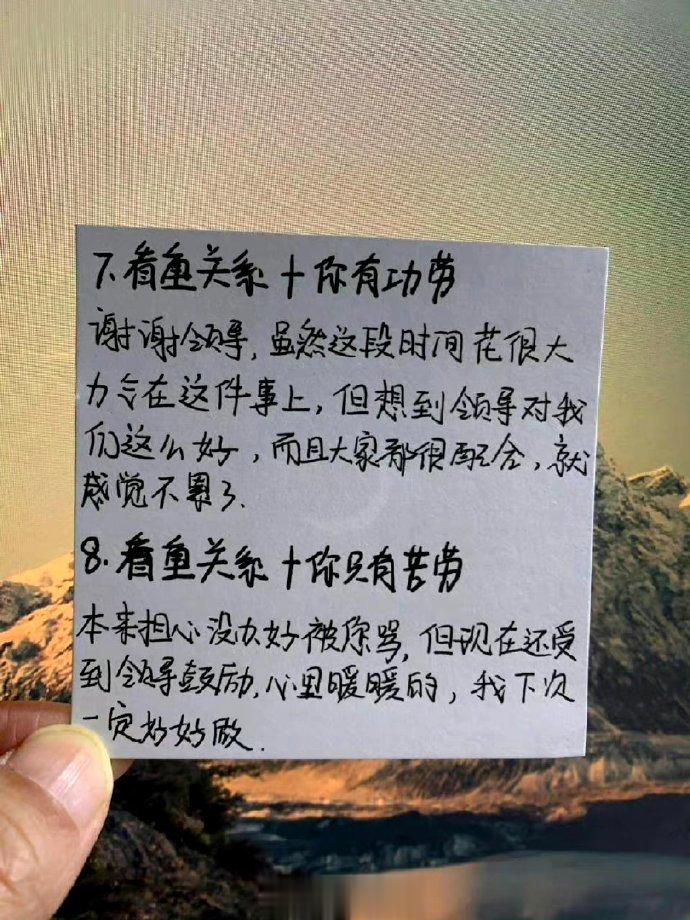 7.看重关系+你有功劳
谢谢领导,虽然这段时间花很大
力气在这件事上,但想到领导对我
们这么好,而且大家都很配合,就
感觉不累了.
8.看重关系+你只有苦劳
本来担心没办好被你骂,但现在还受
到领导鼓励,心里暖暖的,我下次
一定好好做.